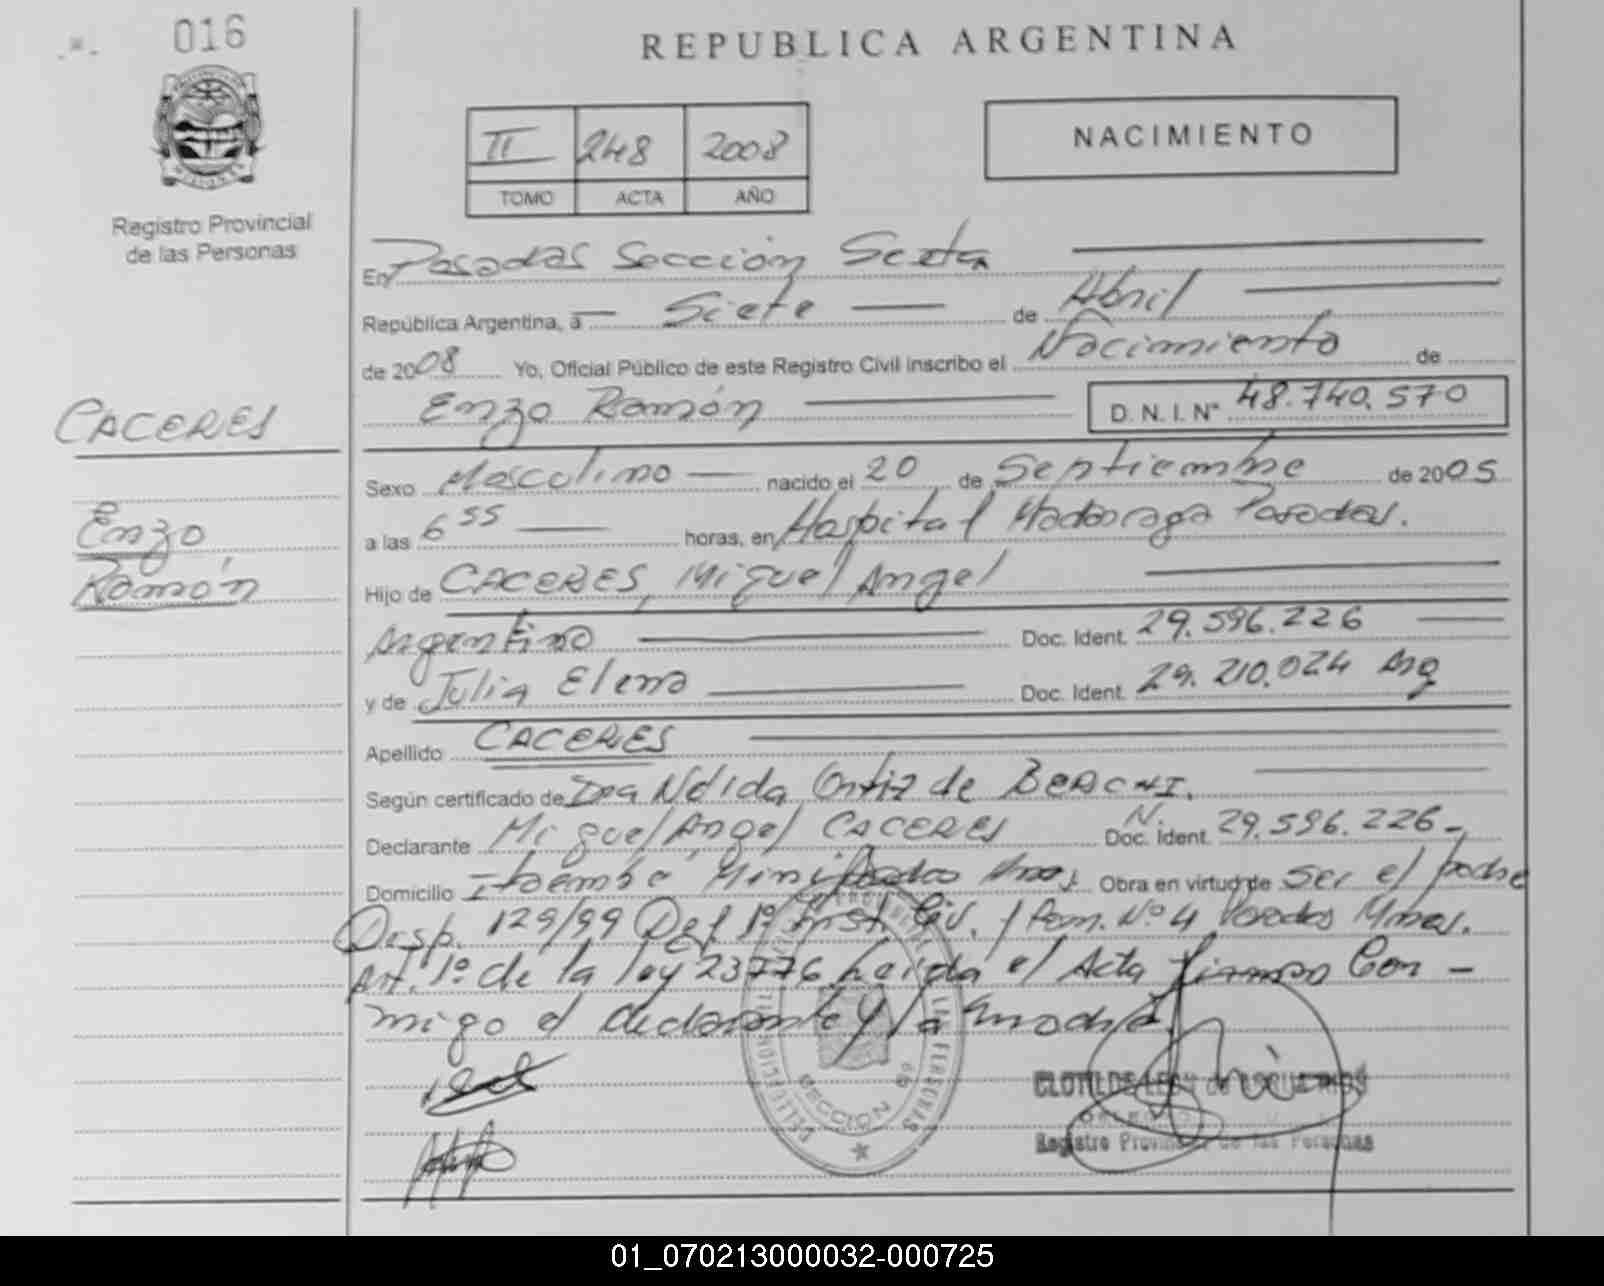 016
REPUBLICA ARGENTINA
II 248 2008
TOMO ACTA AÑO
NACIMIENTO
Registro Provincial
de las Personas
En Posadas Sección Sexta
República Argentina, a Siete de Abril
de 2008 Yo, Oficial Público de este Registro Civil inscribo el Nacimiento de
Enzo Ramón D.N.I. Nº 48.740.570
CACERES
Enzo
Ramón
Sexo Masculino nacido el 20 de Septiembre de 2005
a las 6 55 horas, en Hospital Madariaga Posadas.
Hijo de CACERES, Miguel Angel
Argentino Doc. Ident. 29.596.226
y de Julia Elena Doc. Ident. 29.210.024 Arg
Apellido CACERES
Según certificado de Dra Nélida Ortiz de
Declarante Miguel Angel CACERES N. Doc. Ident. 29.596.226-
Domicilio Itaembé Mini Posadas Mnes. Obra en virtud de ser el padre
Disp. 129/99 Def 1º Inst. Civ. Nº 4 Posadas Mnes.
Art. 1º de la ley 23776 Leída el Acta firman Con-
migo el declarante y la madre.
SECCION 6ª
CLOTILDE
Registro Provincial de las Personas
01_070213000032-000725